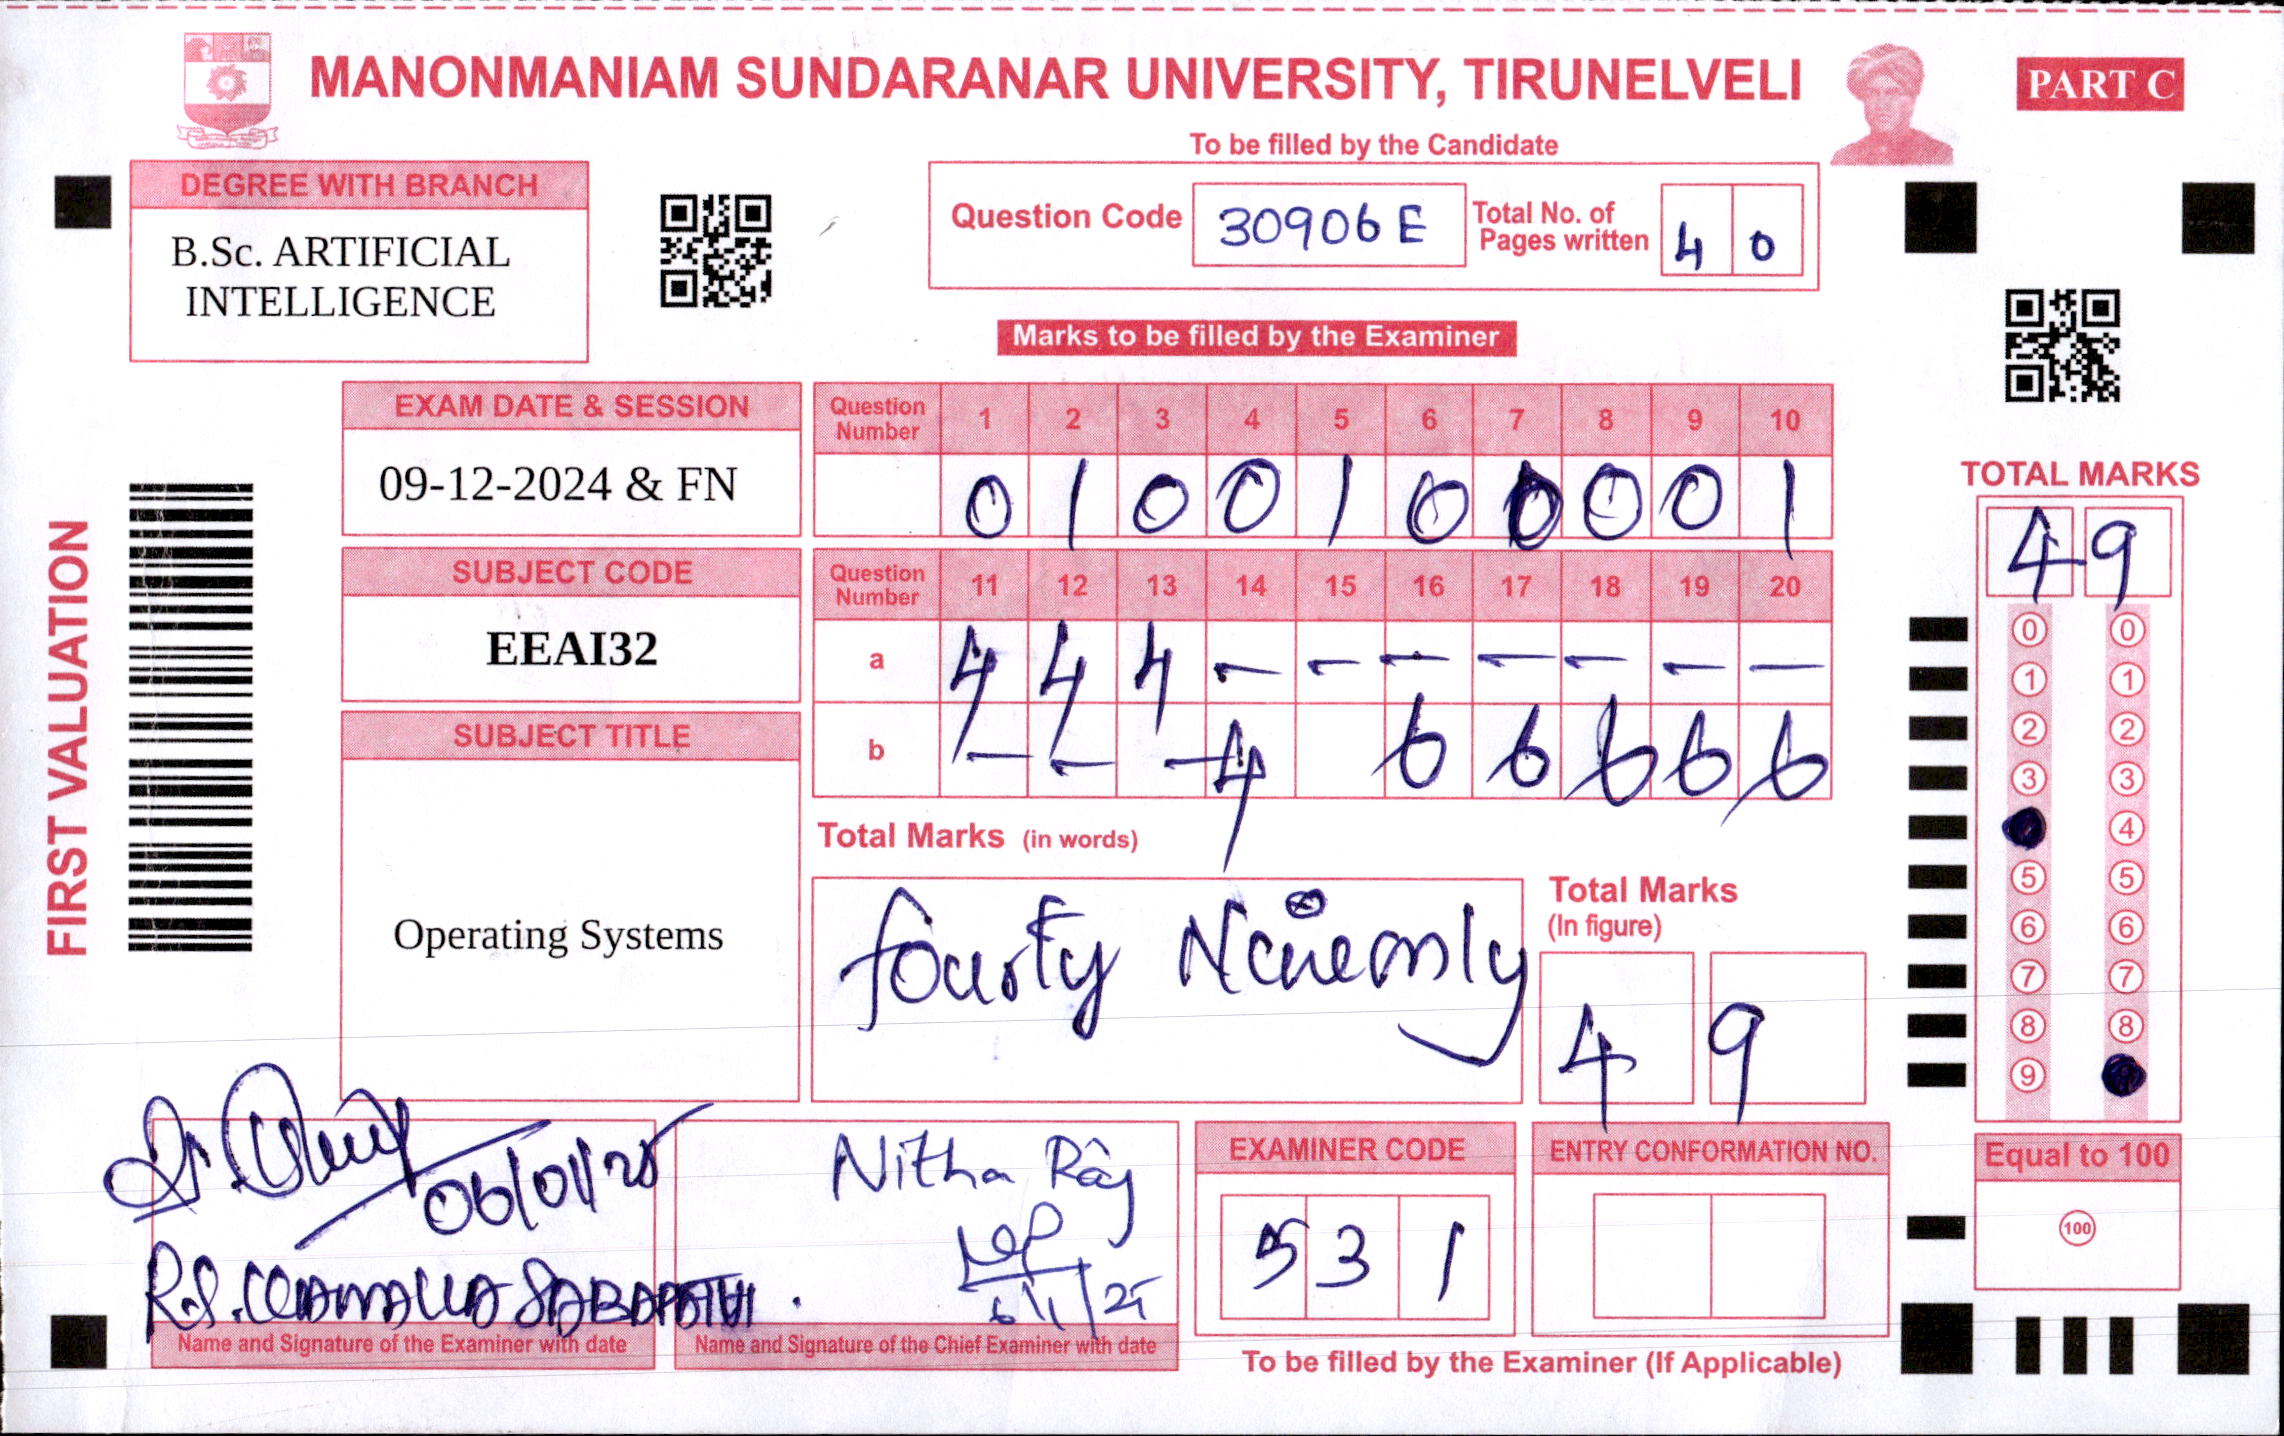 MANONMANIAM SUNDARANAR UNIVERSITY, TIRUNELVELI
PART C
To be filled by the Candidate
DEGREE WITH BRANCH
B.Sc. ARTIFICIAL
INTELLIGENCE
Question Code 30906 E
Total No. of
Pages written 4 0
Marks to be filled by the Examiner
FIRST VALUATION
EXAM DATE & SESSION
09-12-2024 & FN
Question Number 1 2 3 4 5 6 7 8 9 10
0 1 0 0 1 0 0 0 0 1
SUBJECT CODE
EEAI32
Question Number 11 12 13 14 15 16 17 18 19 20
a 4 4 4 - - - - - - -
b - - - 4 6 6 6 6 6
SUBJECT TITLE
Operating Systems
Total Marks (in words)
fourty
Total Marks
(In figure)
4 9
TOTAL MARKS
4 9
0 0
1 1
2 2
3 3
4
5 5
6 6
7 7
8 8
9
Equal to 100
100
06/01/25
R.S. SABAPATHI
Name and Signature of the Examiner with date
Nitha Raj
6/1/25
Name and Signature of the Chief Examiner with date
EXAMINER CODE
5 3 1
ENTRY CONFORMATION NO.
To be filled by the Examiner (If Applicable)